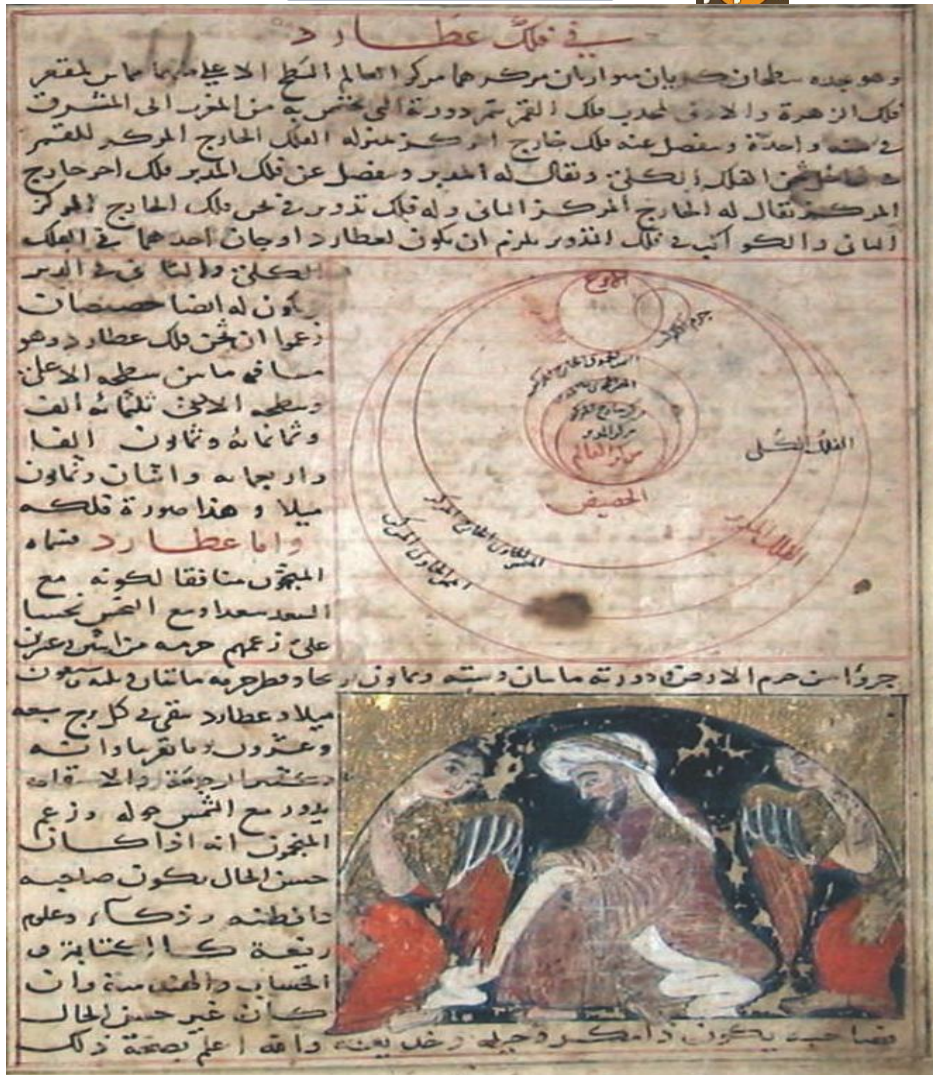 في فلك عطارد
وهو يحده سطحان كريان متوازيان مركزهما مركز العالم السطح الاعلى منهما مماس لمقعر
فلك الزهرة والادنى لمحدب فلك القمر تتم دورته التي تختص به من المغرب الى المشرق
في سنة واحدة وينفصل عنه فلك خارج المركز بمنزلة الفلك الخارج المركز للقمر
في داخل ثخن الفلك الكلي ويقال له المدير وينفصل عن فلك المدير فلك اخر خارج
المركز يقال له الخارج المركز الثاني وله فلك تدوير في ثخن فلك الخارج المركز
الثاني والكواكب في فلك التدوير يلزم ان يكون لعطارد اوجان احدهما في الفلك
الكلي والثاني في المدير
ويكون له ايضا حضيضان
زعموا ان ثخن فلك عطارد وهو
مسافة ما بين سطحه الاعلى
وسطحه الادنى ثلثمائة الف
وثمانمائة وثمانون الفا
واربعمائة واثنان وثمانون
ميلا وهذا صورة فلكه
الاوج
مركز المدير
مركز العالم
الحضيض
الفلك الكلي
الفلك المدير
المتمم الحاوي الخارج المركز
واما عطارد فسماه
المنجمون منافقا لكونه مع
السعد سعدا ومع النحس نحسا
على زعمهم جرمه من اثنين وعشرين
جزؤا من جرم الارض ودورته مائتان وستة وثمانون وقطر جرمه مائتان
ميلا وعطارد يبقى في كل برج سبعة
وعشرون يوما تقريبا وانه
كثير الرجعة والاستقامة
يدور مع الشمس حوله وزعم
المنجمون انه اذا كان
حسن الحال يكون صاحبه
ذا فطنة وذكاء وعلوم
رفيعة كالكتابة و
الحساب والهندسة وان
كان غير حسن الحال
فصاحبه يكون ذا مكر وحيلة وخديعة والله اعلم بصحة ذلك